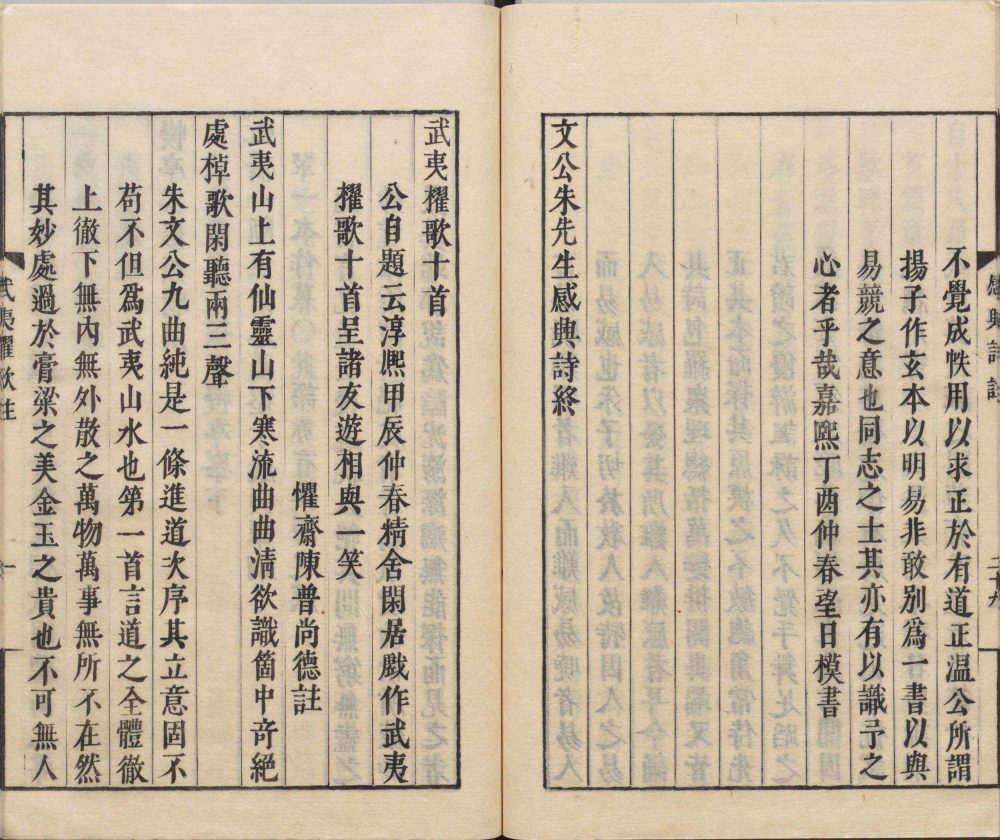 不覺成帙用以求正於有道正温公所謂
揚子作玄本以明易非敢別爲一書以與
易競之意也同志之士其亦有以識予之
心者乎哉嘉熙丁酉仲春望日模書
文公朱先生感興詩終
武夷櫂歌十首
公自題云淳熈甲辰仲春精舍閑居戲作武夷
櫂歌十首呈諸友遊相與一笑
懼齋陳普尚德註
武夷山上有仙靈山下寒流曲曲淸欲識箇中竒絶
處棹歌閑聽兩三聲
朱文公九曲純是一條進道次序其立意固不
苟不但爲武夷山水也第一首言道之全體徹
上徹下無内無外散之萬物萬事無所不在然
其妙處過於膏粱之美金玉之貴也不可無人
武夷櫂歌註
一